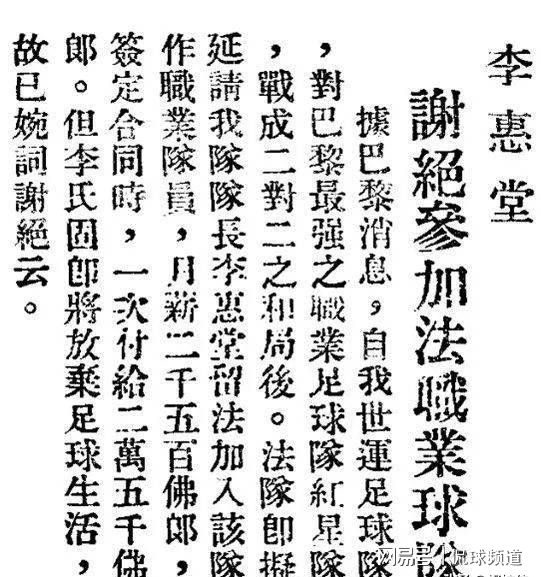 李惠堂
謝絕參加法職業球隊
據巴黎消息，自我世運足球隊
，對巴黎最强之職業足球隊紅星隊
，戰成二對二之和局後。法隊卽擬
延請我隊隊長李惠堂留法加入該隊
作職業隊員，月薪二千五百佛郎，
簽定合同時，一次付給二萬五千佛
郎。但李氏因卽將放棄足球生活，
故已婉詞謝絕云。
网易号 | 侃球频道